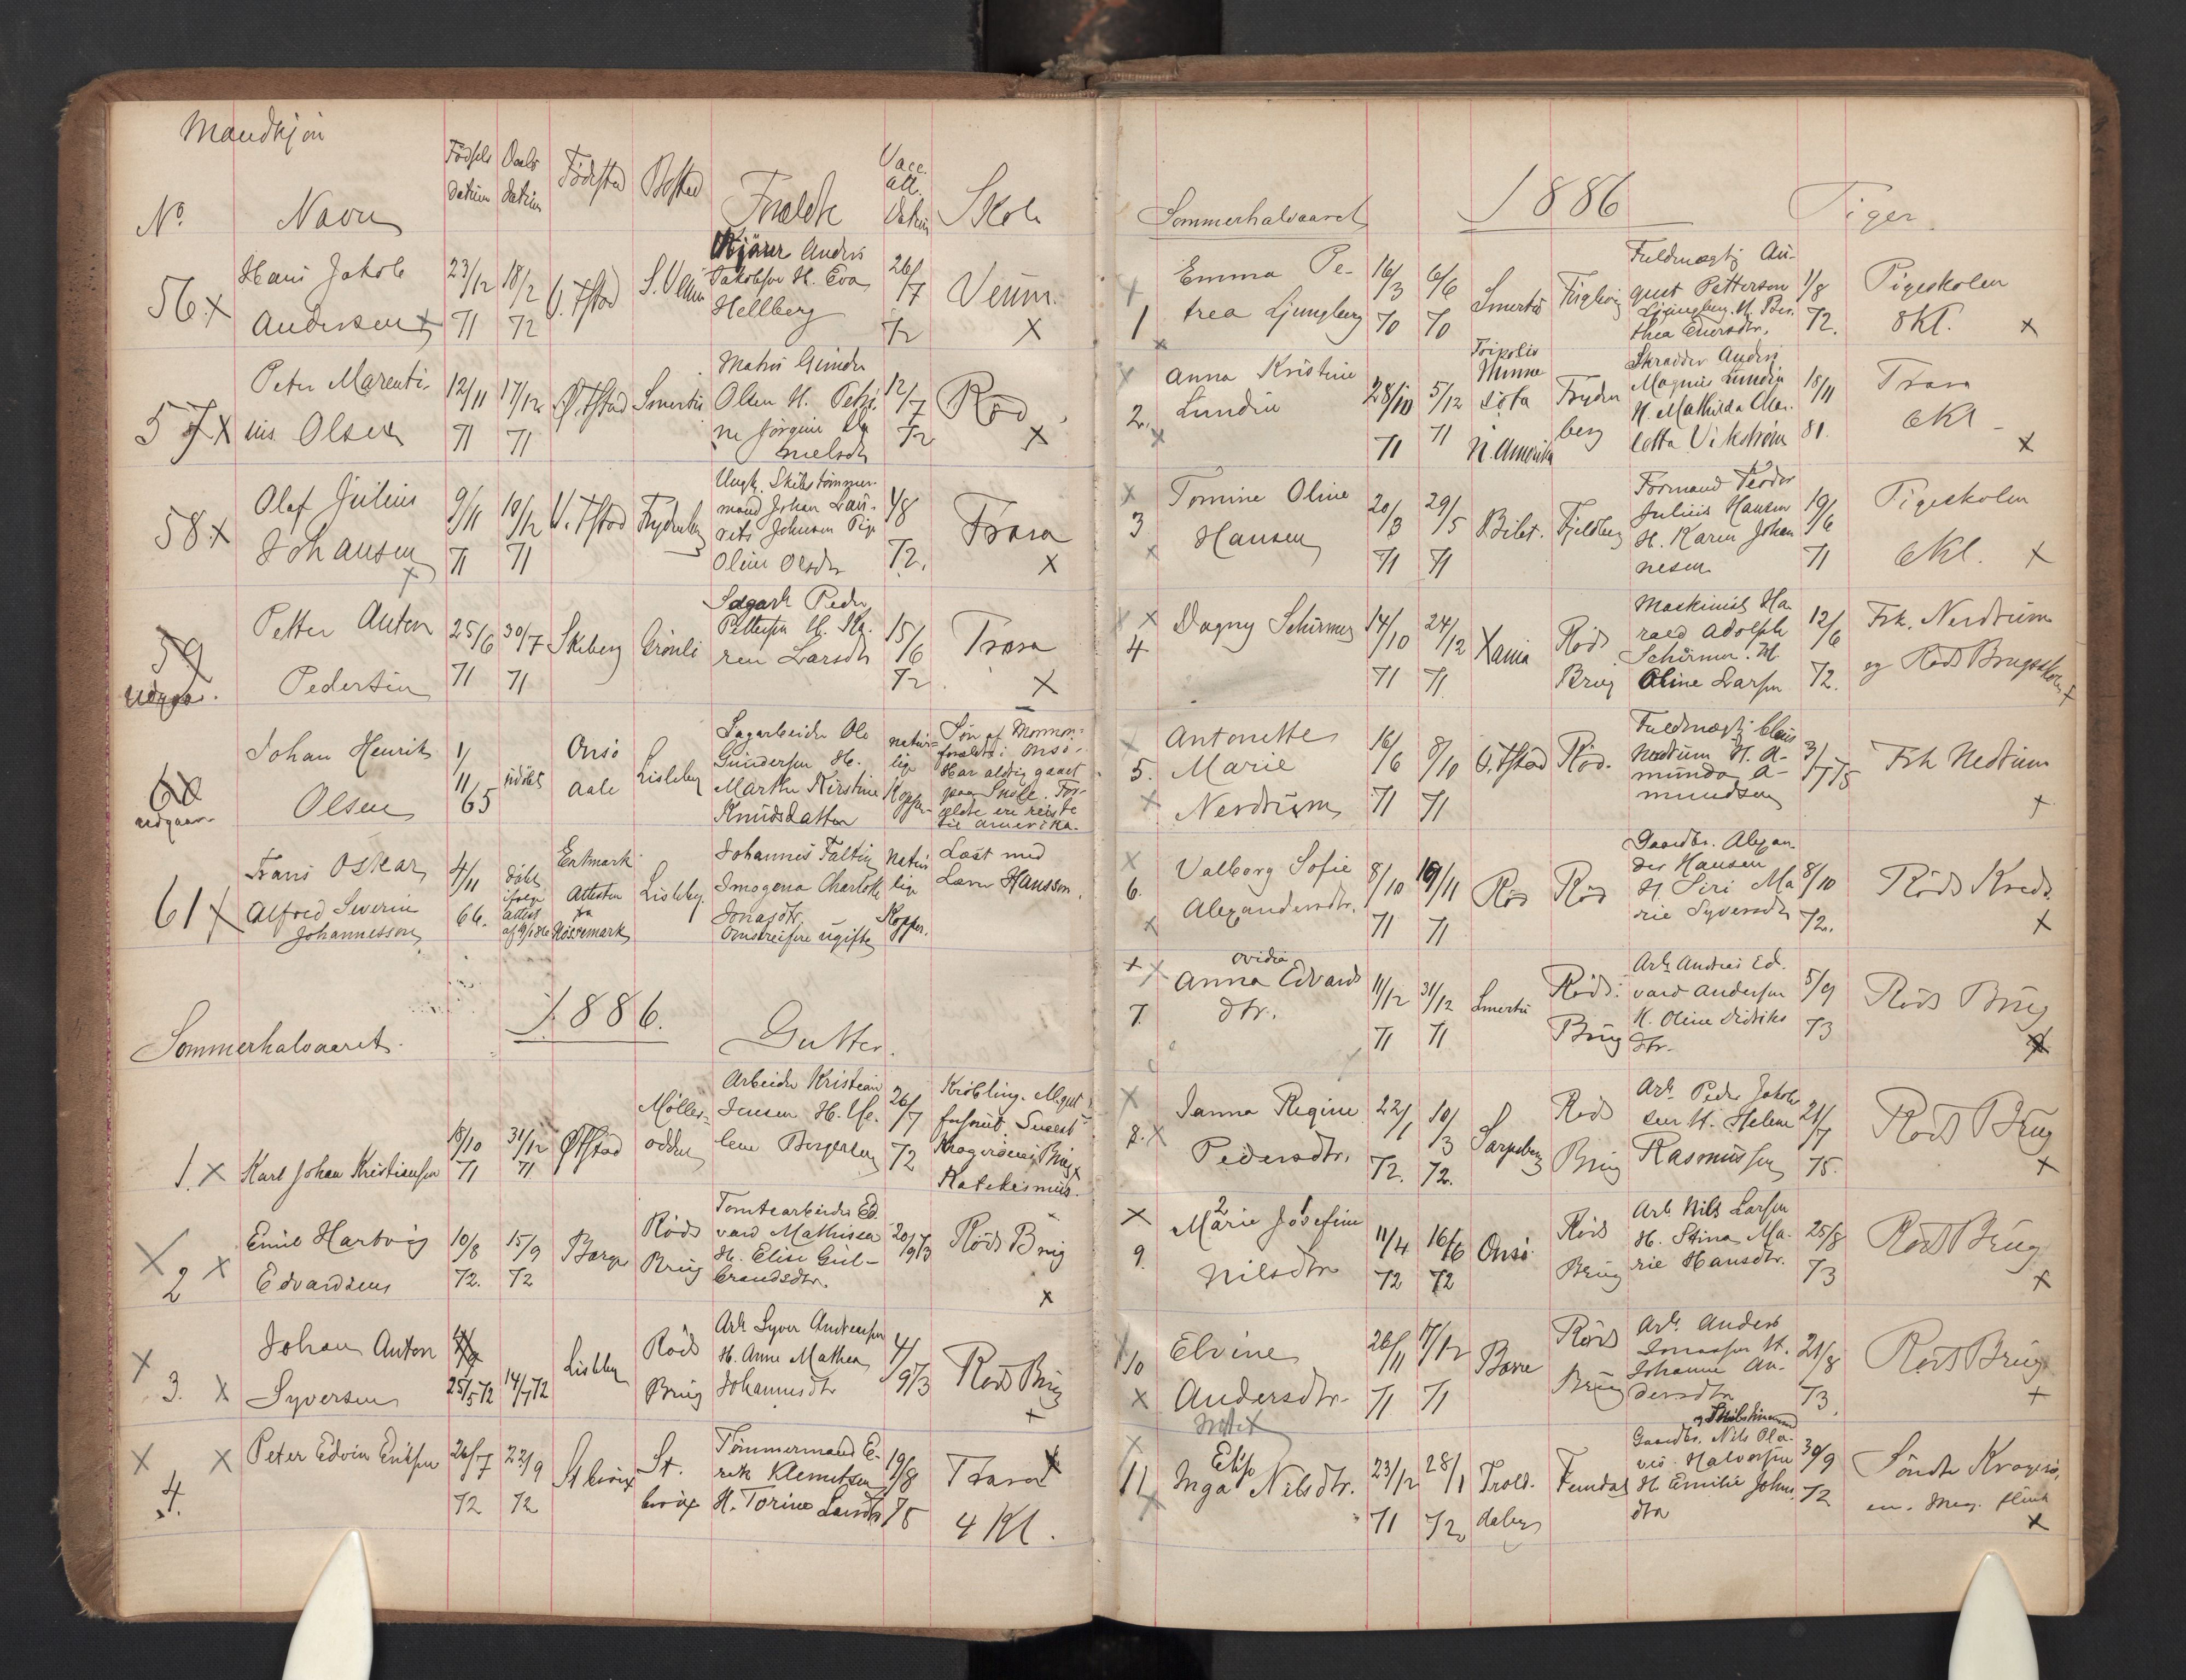 Mandkjøn
No. Navn Fødsels datum Daabs datum Fødested Bosted Forældre Vacc. att. Datum Skole
56 x Hans Jakob Andersen x 23/12 71 18/2 72 V. Fstad S. Veum Anders Jakobsen H. Eva Hellberg 26/7 72 Veum. x
57 x Peter Marenti-
nus Olsen 12/11 71 17/12 71 Ø. Fstad Smertu Matros Gunder
Olsen H. Petri-
ne Jörgine Da
nielsdtr 12/7 72 Röd x
58 x Olaf Julius
Johansen x 9/11 71 10/12 71 V. Fstad Frydenberg Ungk. Skibstømmer-
mand Johan Lau-
rits Johnsen Pige
Oline Olsdtr 4/8 72. Trara x
59 udgaar. Petter Anton
Pedersen 25/6 71 30/7 71 Skeberg Grönli Peder
Pettersen H. Ka-
ren Larsdtr 15/6 72 Trara x
60 udgaar Johan Henrik
Olsen 1/11 65 udöbt Onsö
Aale Lisleby Sagarbeider Ole
Gundersen H.
Marthe Kirstine
Knudsdatter natur-
lige
Kopper Sön af Mormon-
forældre i Onsö.
Har aldrig gaaet
paa Skole. For-
ældre ere reiste
til Amerika.
61 x Frans Oskar
Alfred Severin
Johannesson 4/11 66. döbt
ifölge
attest
Enkmark
Attesten
fra
Rössemark Lisleby. Johannes Faltin
Imogena Charlotte
Jonasdtr.
Omstreifere ugifte Natur
lige
Kopper. Læst med
Lærer Hansson.
Sommerhalvaaret. 1886. Gutter.
1. x Karl Johan Kristiansen 18/10 71 31/12 71 Ø Fstad Möller-
odden Arbeider Kristian
Jensen H. He-
lene Borgersen 26/7 72
Kragerøens Brug x
Katekismus.
x 2 x Emil Hartvig
Edvardsen 10/8 72. 15/9 72 Borge Röds
Brug Tomtearbeider Ed
vard Mathisen
H. Elise Gul-
brandsdtr. 20/9 73 Röds Brug x
x 3. x Johan Anton
Syversen 25/5 72 14/7 72 Lisleby Röds
Brug Arb Syver Andreassen
H. Anne Mathea
Johannesdtr 4/9 73 Röds Brug x
x 4. x Peter Edvin Eriksen 26/7 72 22/9 72 St. Croix St.
Croix Tömmermand E-
rik Klemetsen
H. Torine Larsdtr 19/8 75 Trara x
4 Kl.
Sommerhalvaaret 1886 Piger.
x 1 x Emma Pe-
trea Ljungberg 16/3 70 6/6 70 Smertu Fuglevig Fuldmægtig Au-
gust Petterson
Ljungberg. H. Ber.
thea Enersdtr. 1/8 72. Pigeskolen
8 Kl. x
x 2. x Anna Kristine
Lundin 28/10 71 5/12 71 Tripolis
Minne
sota
N. Amerika Fryden
berg Skrædder Anders
Magnus Lundin
H. Mathilda Char.
lotta Vikström 18/11 81. Trara
6 Kl x
x 3 x Tomine Oline
Hansen 20/3 71 29/5 71 Bilet. Fjeldberg Formand Teodor
Julius Hansen
H. Karen Johan
nesen 19/6 71 Pigeskolen
6 Kl. x
x x 4 Dagny Schirmer 14/10 71 24/12 71 Xania Röds
Brug Maskinist Ha
rald Adolph
Schirmer. H.
Oline Larsen 12/6 72. Frk. Nerdrum
og Röds Brugsskole x
x 5. x Antonette
Marie
Nerdrum 16/6 71 8/10 71 V. Fstad Röd. Fuldmægtig Claus
Nerdrum H. A-
munda A-
mundsen 3/7 75 Frk Nerdrum x
x 6. x Valborg Sofie
Alexandersdtr. 8/10 71 19/11 71 Röd Röd Gaardbr. Alexan
der Hansen
H. Siri Ma
rie Syversdtr 8/10 72. Röds Kreds. x
x x 7. ovidia
Anna Edvards
dtr. 11/12 71 31/12 71 Smertu Röds
Brug Arb Andreas Ed.
vard Andersen
H. Oline Didriks
dtr. 5/9 73 Röds Brug x
x 8. x Janna Regine
Pedersdtr. 22/1 72. 10/3 72. Sarpsborg Röds
Brug Arb. Peder Jakob
sen H. Helene
Rasmussen 21/7 75. Röds Brug x
x 9. 2 1
Marie Josefine
Nilsdtr 11/4 72 16/6 72 Onsö Röds
Brug Arb Nils Larsen
H. Stina Ma-
rie Hansdtr. 25/8 73 Röds Brug x
x 10 x Elvine
Andersdtr. 26/11 71 17/12 71 Borre Röds
Brug Arb. Anders
H.
Johanne An-
dersdtr 21/8 73. Röds Brug x
x 11 x Elise
Inga Nilsdtr. 23/12 71 28/1 72 Trold-
dalen Femdal Gaardbr. Nils Ola-
ves Halvorsen
H Emilie Johns
dtr 30/9 72 Söndre Kragerö,
x